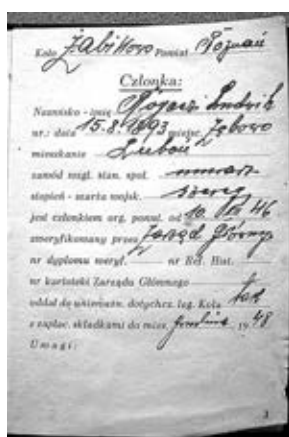 Koło Żabikowo Powiat Poznań
Członka:
Nazwisko - imię Ludwik
ur.: data 15.8.1893 miejsc.
mieszkanie Luboń
zawód wzgl. stan. społ. murarz
stopień - szarża wojsk. szereg.
jest członkiem org. powst. od 10. VII 46
zweryfikowany przez Zarząd Główny
nr dyplomu weryf. nr Ref. Hist.
nr kartoteki Zarządu Głównego
oddał do unieważn. dotychcz. leg. Koła tak
z zapłac. składkami do mies. grudnia 1948
Uwagi:
3